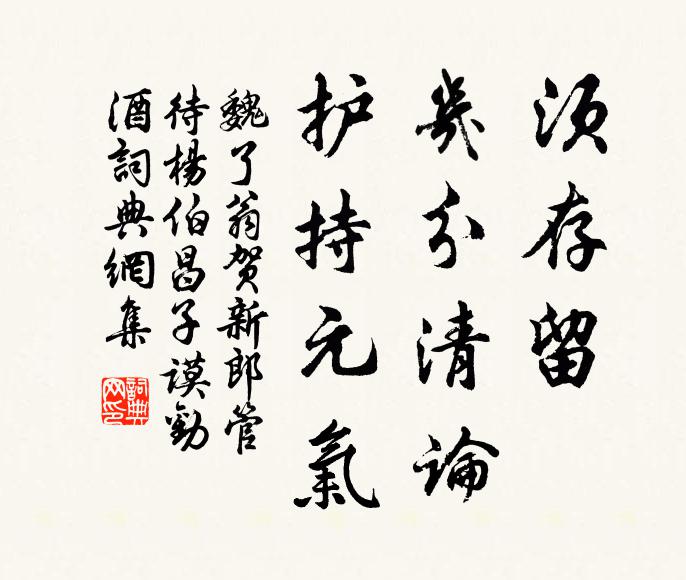 须存留
幾分清論
护持元氣
魏了翁贺新郎管
待楊伯昌子謨勸
酒詞典網集
詞典網印